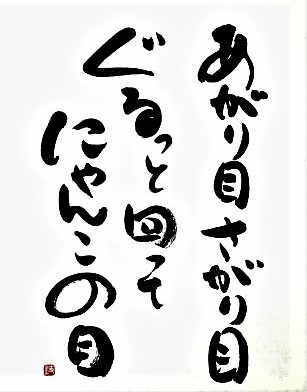 あがり目さがり目
ぐるっと回って
にゃんこの目